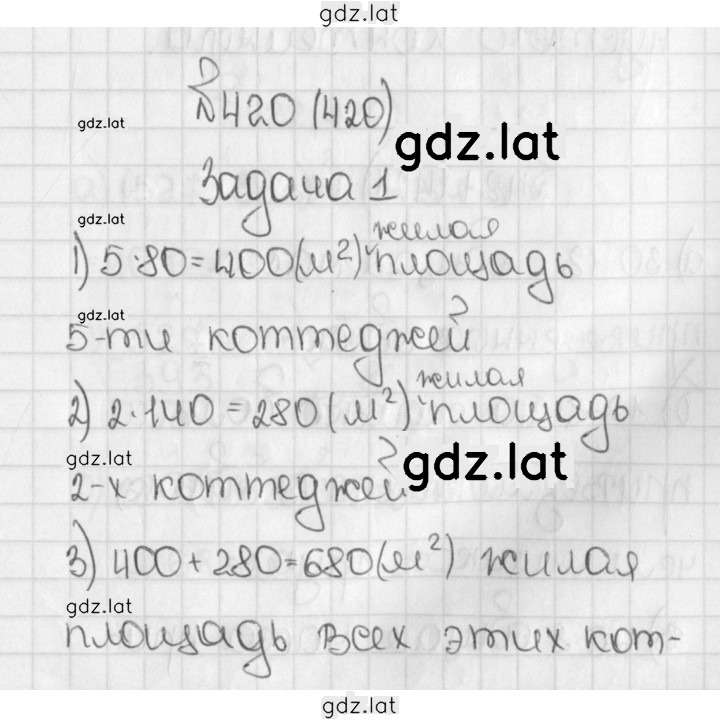 gdz.lat
№420 (420)
gdz.lat
gdz.lat
Задача 1
gdz.lat
жилая
1) 5·80=400(м²) площадь
gdz.lat
5-ти коттеджей
жилая
2) 2·140=280(м²) площадь
gdz.lat
gdz.lat
2-х коттеджей
3) 400+280=680(м²) жилая
gdz.lat
площадь всех этих кот-
gdz.lat